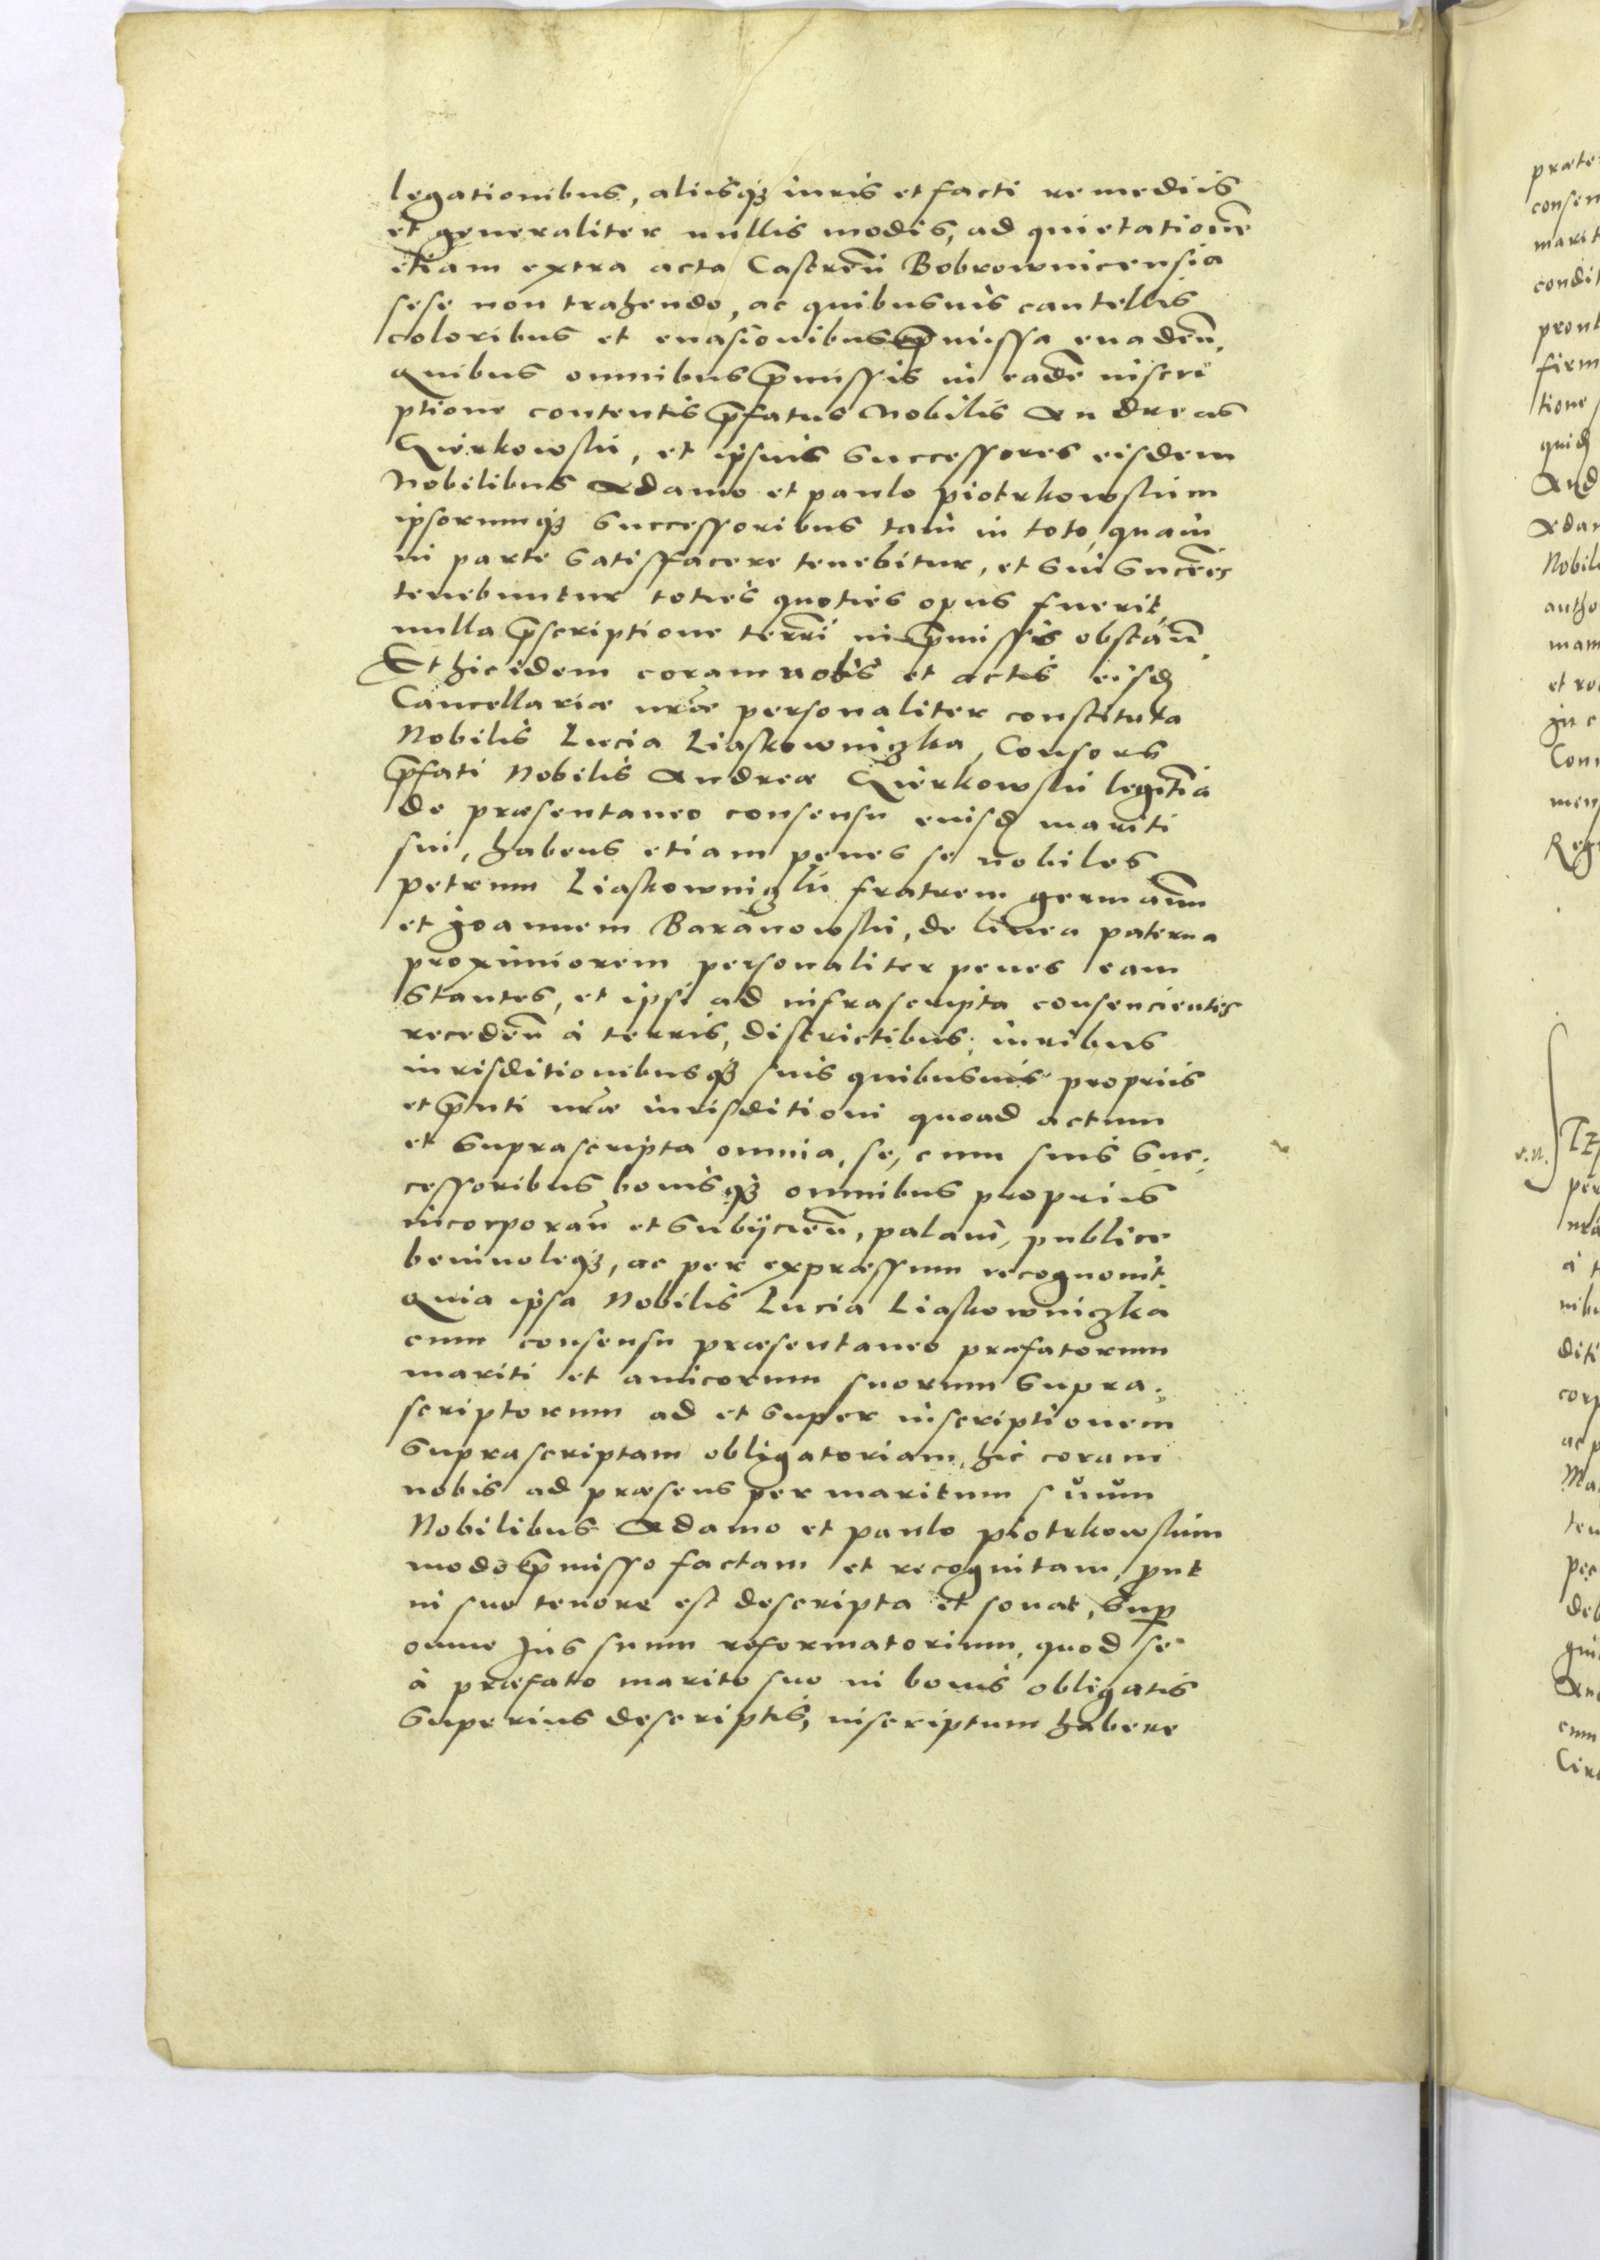 legationibus, aliisq iuris et facti remediis
et generaliter nullis modis, ad quietatione
etiam extra acta Castren Bobrownicensia
sese non trahendo, ac quibusuis cautellis
coloribus et euasionibus pmissa euaden.
Quibus omnibus pmissis in eade inscri
ptione contentis pfatus Nobilis Andreas
Kierkowski, et ipsius successores eisdem
Nobilibus Adamo et paulo piotrkowskim
ipsorumq successoribus tam in toto, quam
in parte satisfacere tenebitur, et sui succes
tenebuntur toties quoties opus fuerit,
nulla pscriptione terri in pmissis obstan.
Et hic idem coram nobis et actis eisd
Cancellariæ nræ personaliter constituta
Nobilis Lucia Liaskowniczka, Consors
pfati Nobilis Andreæ Kierkowski legitia
de præsentaneo consensu eiusd mariti
sui, habens etiam penes se nobiles
petrum Liaskowniczki fratrem germanu
et Joannem Baranowski, de linea paterna
proximiorem personaliter penes eam
stantes, et ipsi ad infrascripta consencientes
receden à terris, districtibus, iuribus
iurisditionibusq suis quibusuis propriis
et pnti nræ iurisditioni quoad actum
et suprascripta omnia, se, cum suis suc-
cessoribus bonisq omnibus propriis
incorporan et subijcien, palam, publice
beniuoleq, ac per expræssum recognouit.
Quia ipsa Nobilis Lucia Liaskowniczka
cum consensu præsentaneo præfatorum
mariti et amicorum suorum supra-
scriptorum ad et super inscriptionem
suprascriptam obligatoriam, hic coram
nobis ad præsens per maritum suum
Nobilibus Adamo et paulo piotrkowskim
modo pmisso factam et recognitam, put
in suo tenore est descripta et sonat, sup
omne Jus suum reformatorium, quod se
à præfato marito suo in bonis obligatis
superius descriptis, inscriptum habere